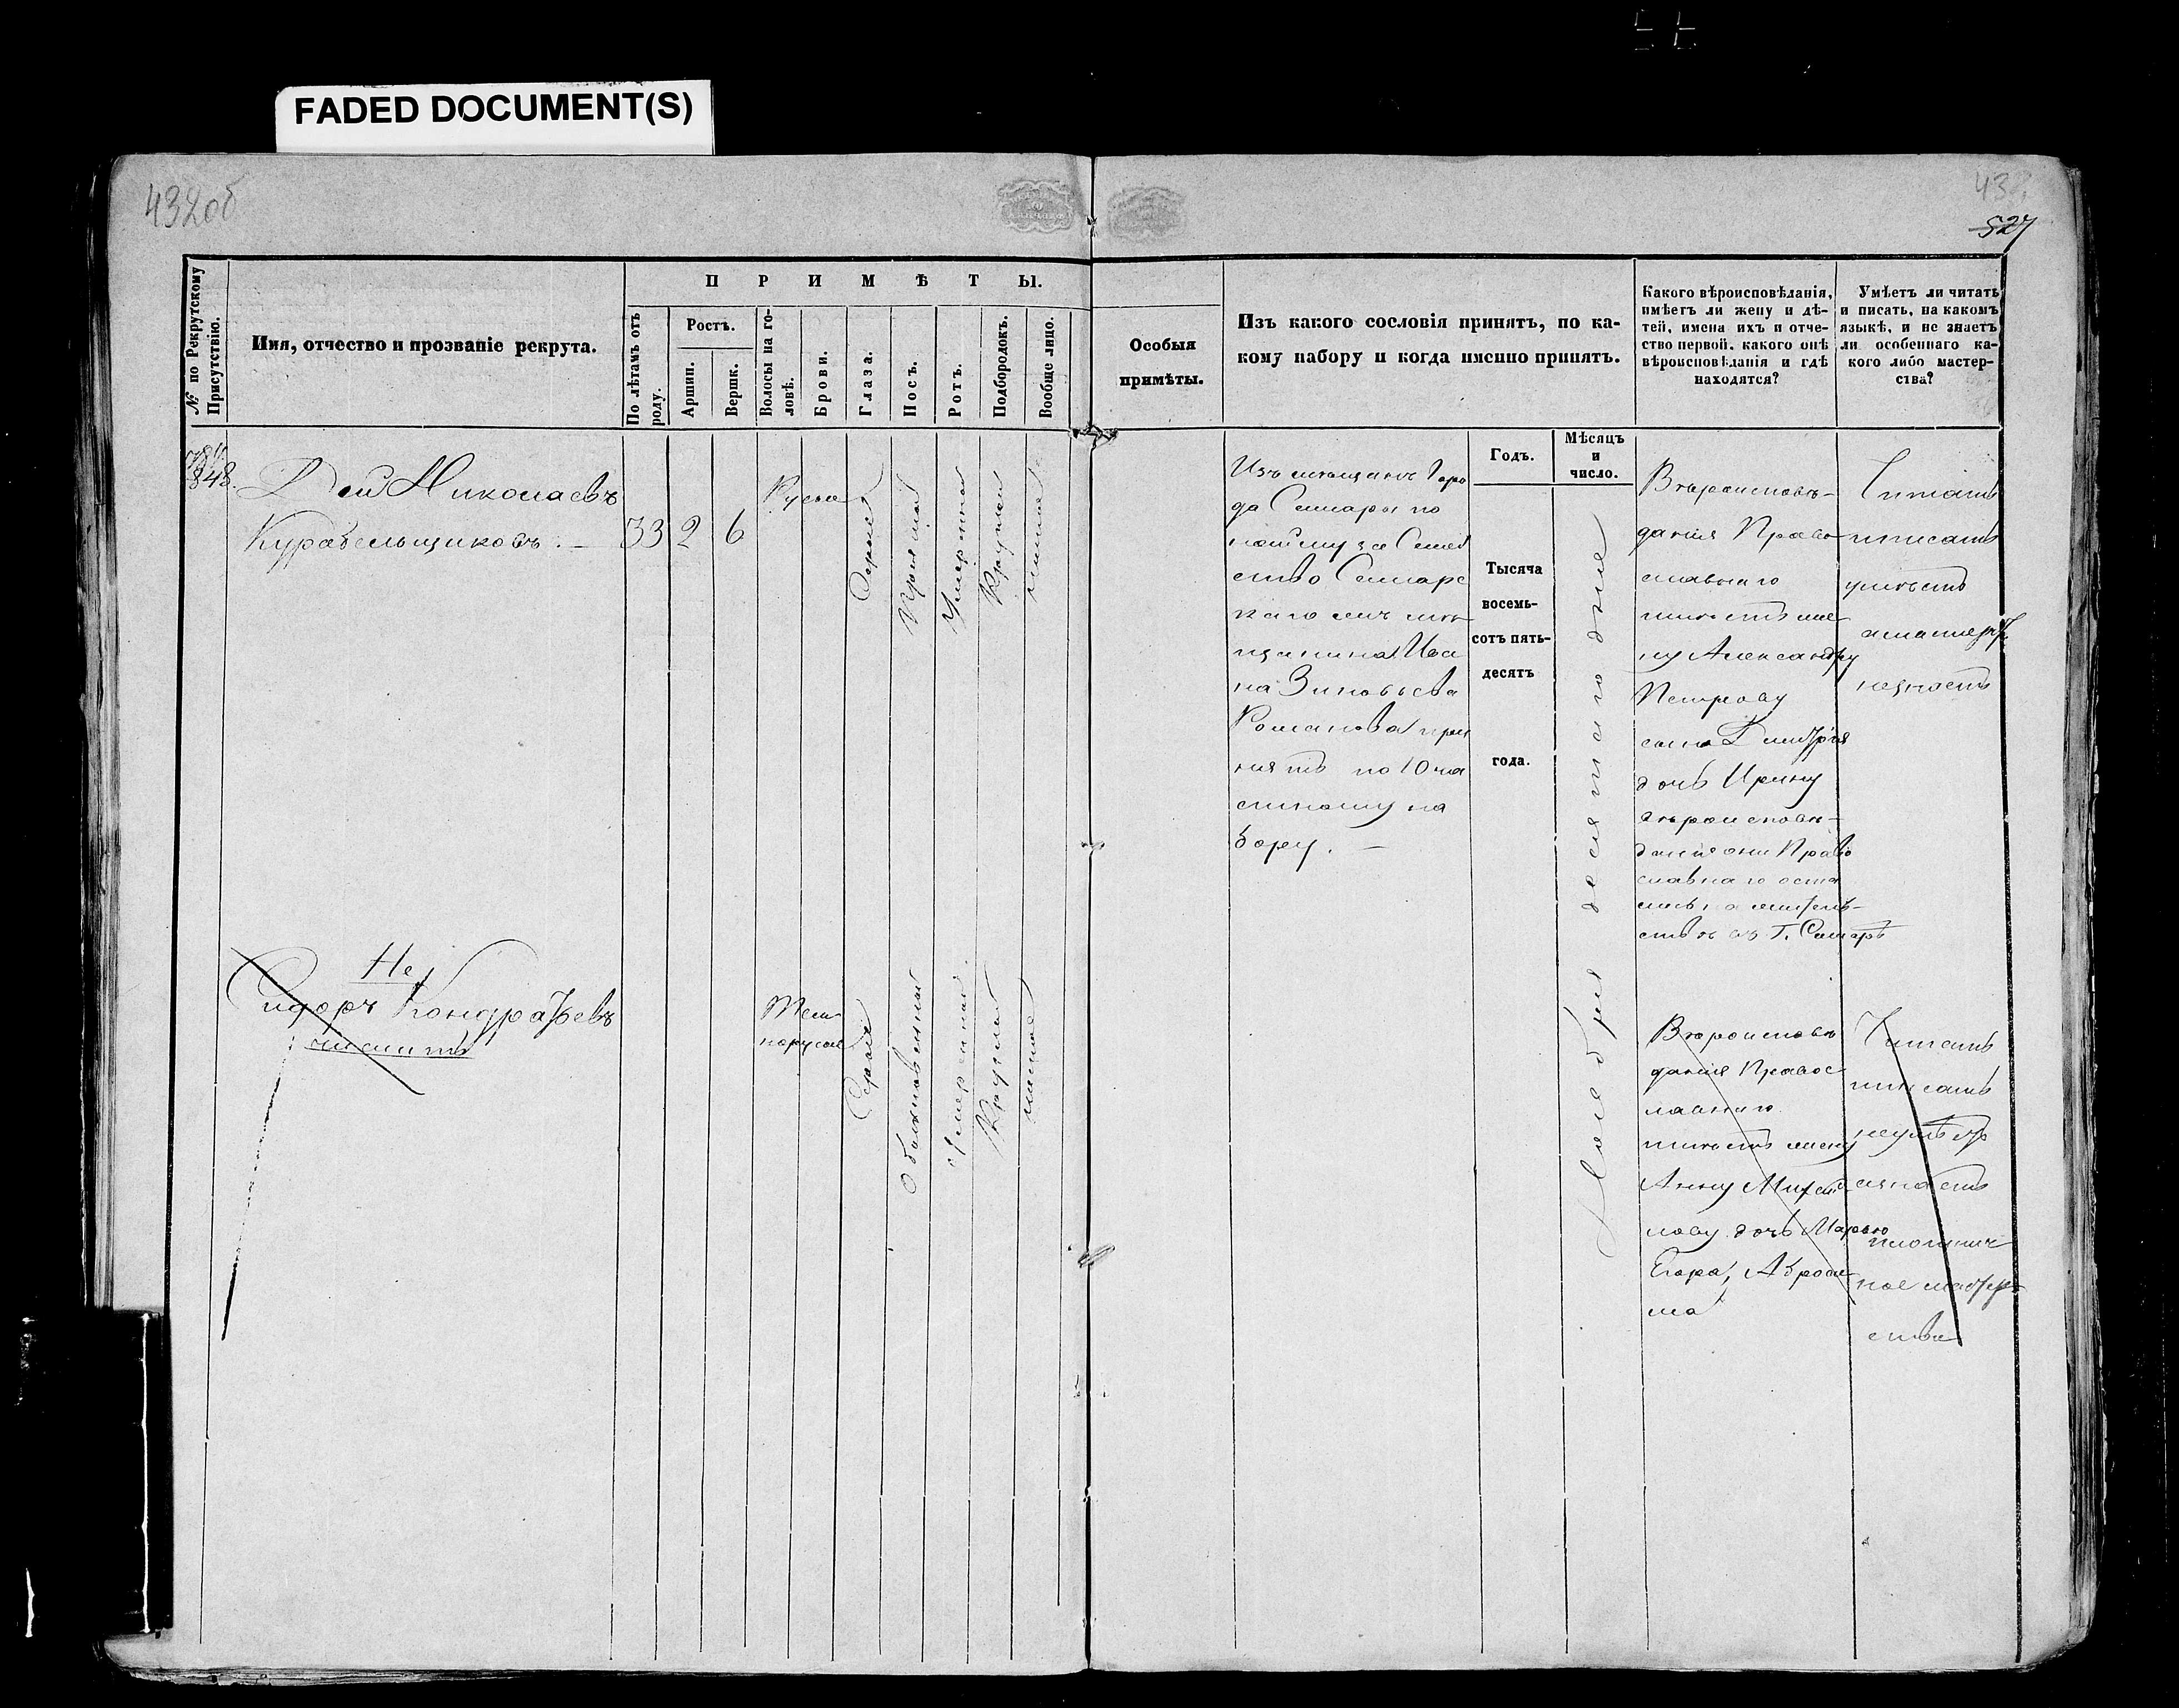 FADED DOCUMENT(S)
432об
527
№ по Рекрутскому Присутствію.
Имя, отчество и прозваніе рекрута.
ПРИМѢТЫ.
По лѣтамъ отъ роду.
Ростъ.
Аршин.
Вершк.
Волосы на головѣ.
Брови.
Глаза.
Носъ.
Ротъ.
Подбородокъ.
Вообще лицо.
Особыя
примѣты.
Изъ какого сословія принятъ, по ка-
кому набору и когда именно принятъ.
Какого вѣроисповѣданія,
имѣетъ ли жену и дѣ-
тей, имена ихъ и отче-
ство первой, какого онѣ
вѣроисповѣданія и гдѣ
находятся?
Умѣетъ ли читать
и писать, на какомъ
языкѣ, и не знаетъ
ли особеннаго ка-
кого либо мастер-
ства?
Годъ.
Мѣсяцъ
и
число.
848.
Николаевъ
Курабельщиковъ. —
33
2
6
Русые
Серые
Прямой
Умеренной
Круглой
чистое
Изъ мещанъ Горо
да Самары по
найму за Семей
ство Самарс
каго мещанина Ива
на Зиновьева
Романова при
нятъ по 10 ча
стному на
бору. —
Тысяча
восемь-
сотъ пять-
десятъ
года.
десятаго дня
Вѣроисповѣ-
данія Право
славнаго
имѣетъ же
ну Александру
Петрову
сына Дмитрія
дочь Ирину
вѣроисповѣ-
данія они Право
славнаго оста
лись на жительствѣ въ Г. Самарѣ
Читать
писать
умѣетъ
а мастерст
незнаетъ
Не
Сидоръ Кондратьевъ
Тем
норусые
Серые
Обыкновенной
Умеренной
Круглой
чистое
Вѣроисповѣ
данія Правос
лавнаго
имѣетъ жену
Анну Михай
лову дочь Марью
Егора, Аброси
ма
Читать
писать
неумѣетъ
а знаетъ
плотнич
ное мастер
ство